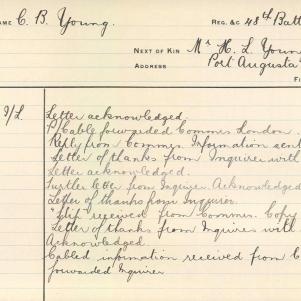 NAME C. B. Young. REG. &c 48th Batt
NEXT OF KIN Mr H. L. Youn
ADDRESS Port Augusta
I/L Letter acknowledged.
P/Cable forwarded Commrs London
Reply from Commrs. Information sent
Letter of thanks from Inquirer with
Letter acknowledged.
Further letter from Inquirer. Acknowledged
Letter of thanks from Inquirer.
"Slip" received from Commrs. Copy
Letter of thanks from Inquirer with
Acknowledged.
Cabled information received from C
forwarded Inquirer